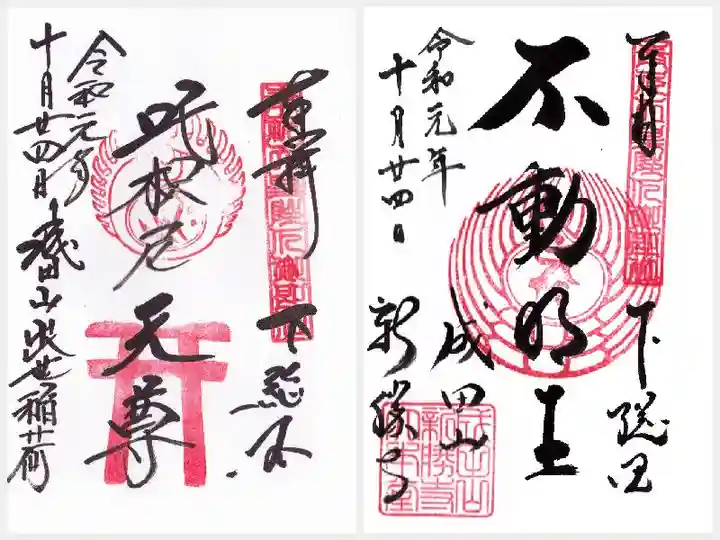 奉拝 下総国
不動明王
成田山
新勝寺
令和元年
十月廿四日
成田山
新勝寺
奉拝 下総国
吒枳尼天尊
令和元年
十月廿四日 成田山出世稲荷